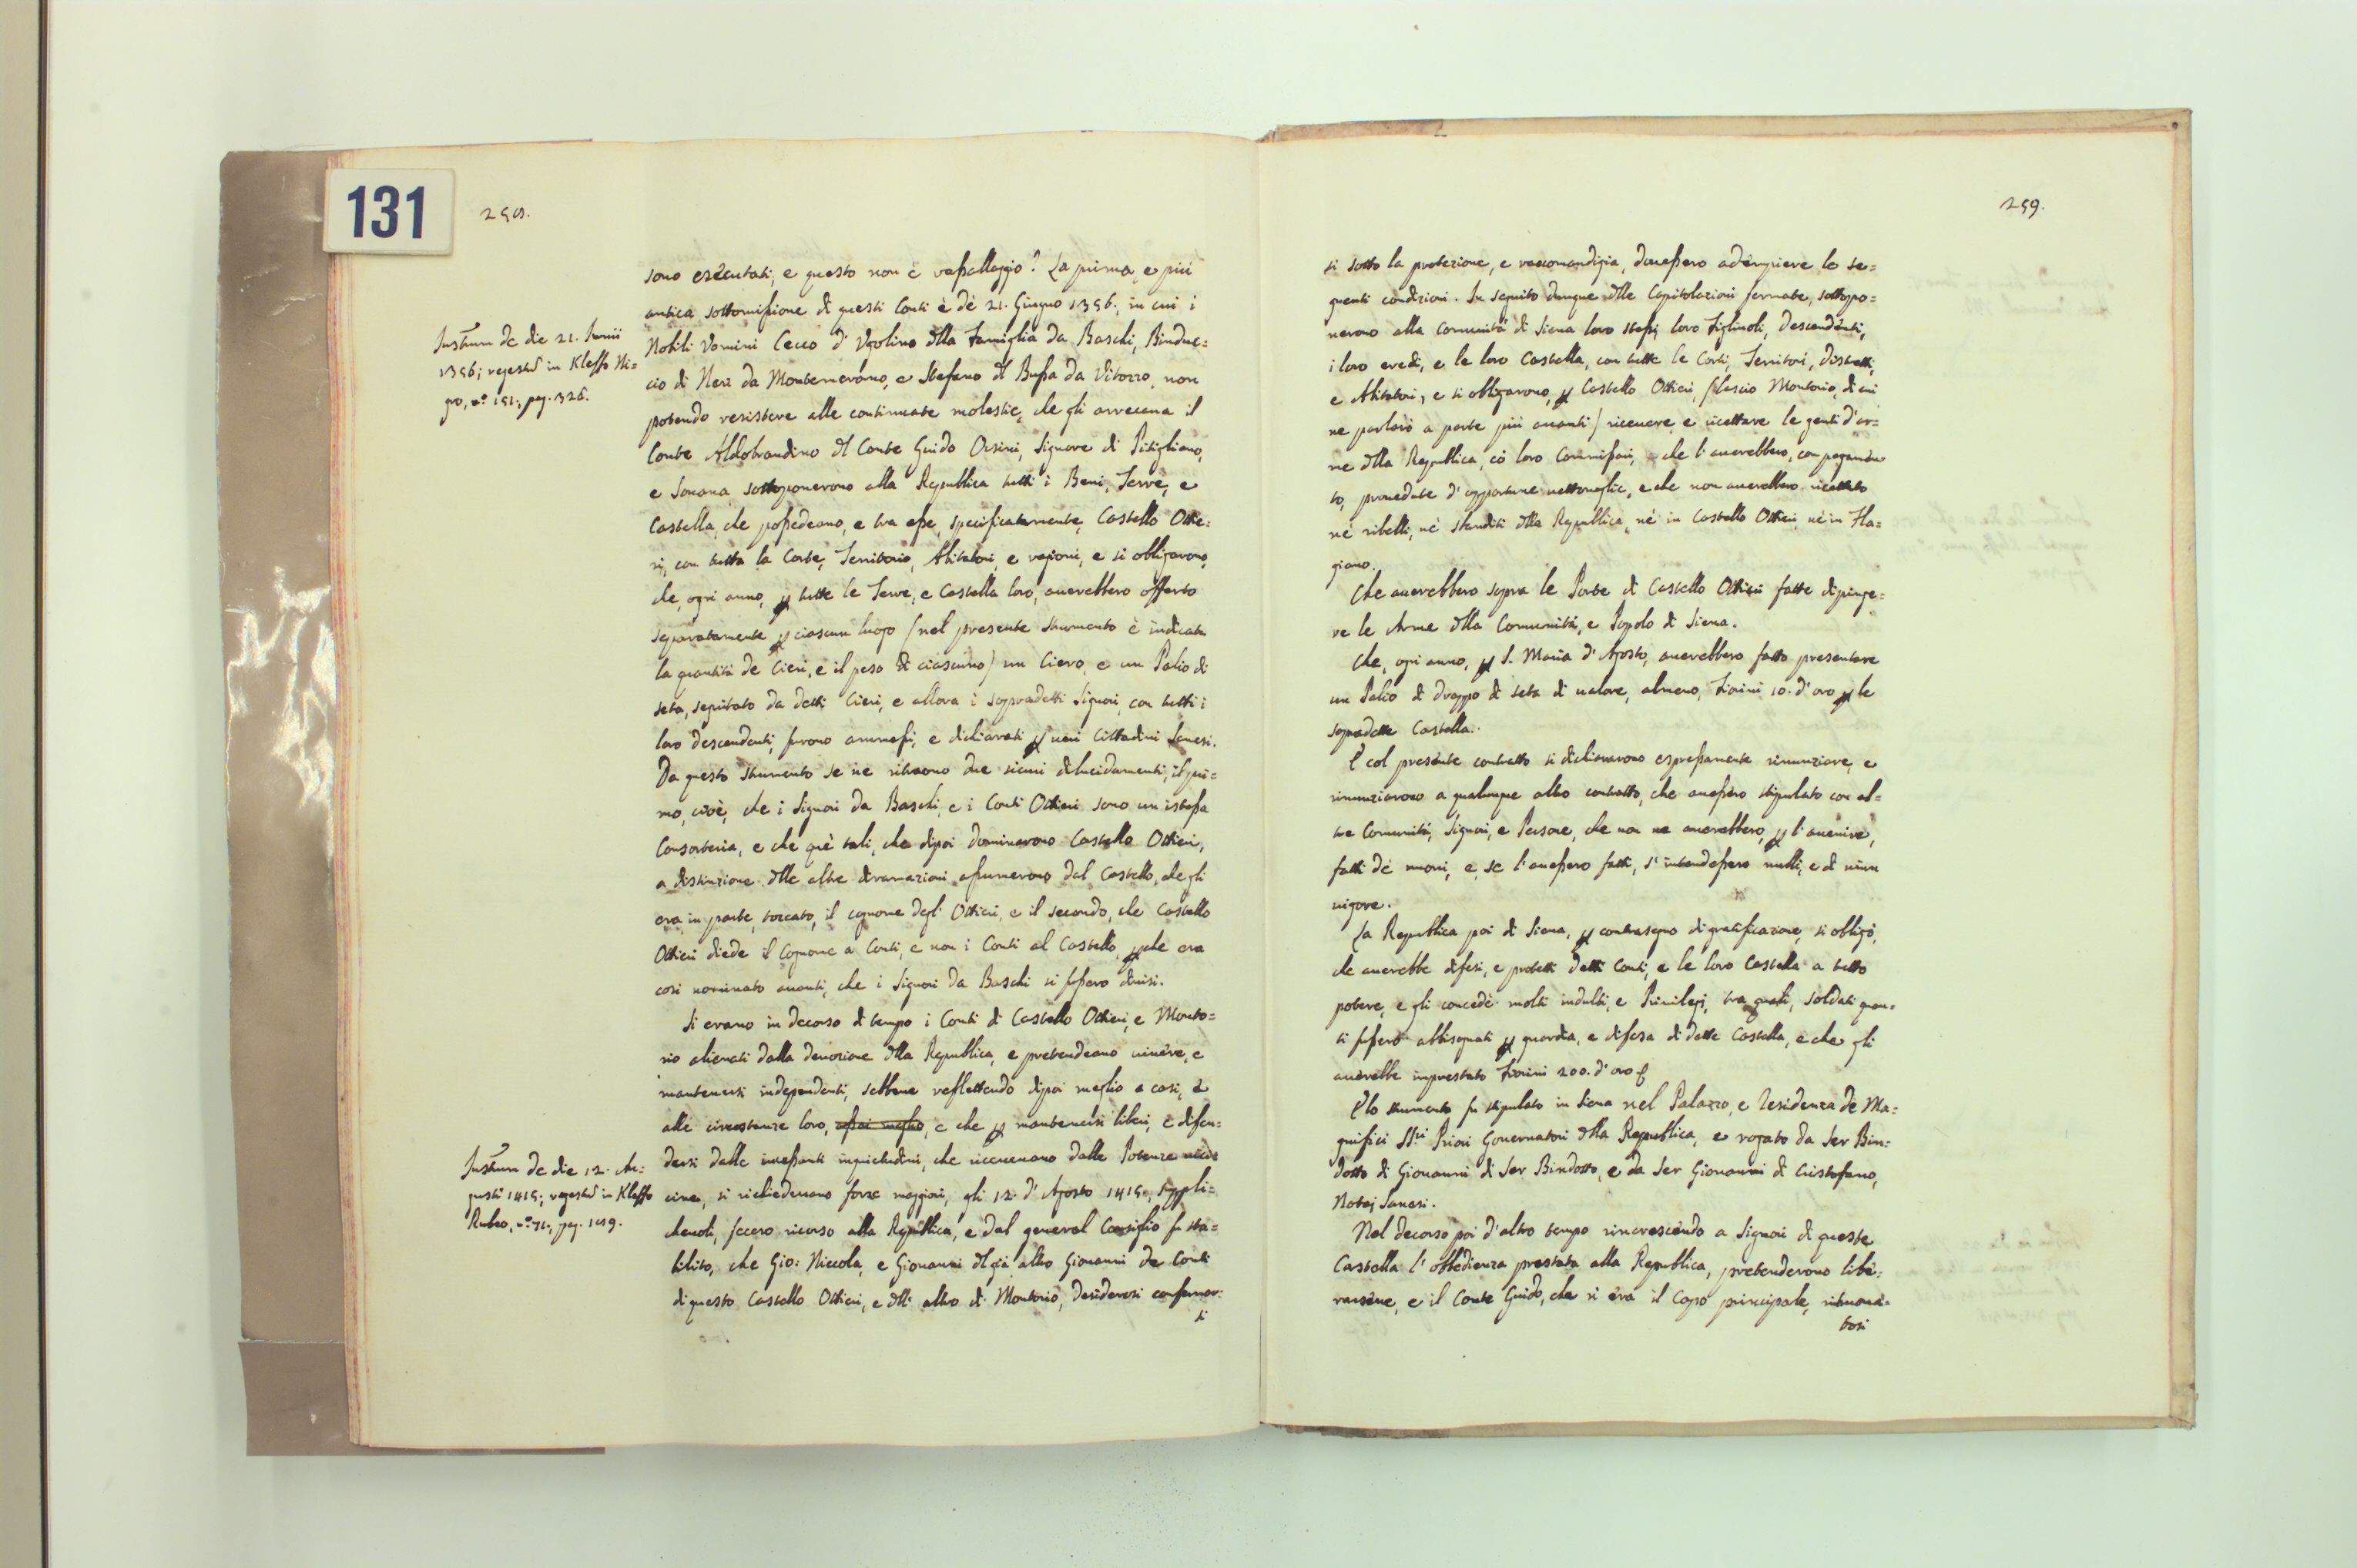 131
258.
sono esécutati; e questo non è vaßallaggio? La prima, e più
antica sottomißione di questi Conti è dè 21. Giugno 1356; in cui i
Nobili Vomini Cecco d' Vgolino dlla Famiglia da Baschi, Binduc=
cio di Neri da Montemeráno, e Stefano dl Bußa da Vitozzo, non
potendo resistere alle continuate molestie, che gli arrecaua il
Conte Aldobrandino dl Conte Guido Orsini, Signore di Pitigliano,
e Souana sottoponerono alla Republica tutti i Beni, Terre, e
Castella, che poßedeano, e tra eße, specificatamente, Castello Ottie=
ri, con tutta la Corte, Territorio, Abitatori, e ragioni, e si obbligarono,
che, ogni anno, p tutte le Terre, e Castella loro, auerebbero offerto
separatamente p ciascun luogo (nel presente strumento è indicata
la quantità de Cieri, e il peso di ciascuno) un Ciero, e un Palio di
seta, seguitato da detti Cieri, e allora i sopradetti Signori, con tutti i
loro descendenti, furono ammeßi, e dichiarati p ueri Cittadini Senesi.
Da questo strumento se ne ritraono due sicuri dilucidamenti, il pri=
mo, cioè, che i Signori da Baschi, e i Conti Ottieri sono un istessa
Consorteria, e che què tali, che dipoi dominarono Castello Ottieri,
a distinzione dlle altre diramazioni aßumerono dal Castello, che gli
era, in parte, toccato, il cognome degl' Ottieri, e il secondo, che Castello
Ottieri diede il Cognome a Conti, e non i Conti al Castello, pche era
così nominato auanti, che i Signori da Baschi si foßero diuisi.
Si erano in decorso di tempo i Conti di Castello Ottieri, e Monto=
rio alienati dalla deuozione dlla Republica, e pretendeano uiuére, e
mantenersi independenti, sebbene reflettendo dipoi meglio a casi, e
alle circostanze loro, aßai meglio, e che p mantenersi liberi, e difen=
dersi dalle inceßanti inquietudini, che riceueuano dalle Potenze uici
cine, si richiedeuano forze maggiori, gli 12. d' Agosto 1415., suppli=
cheuoli, fecero ricorso alla Republica, e dal general Consiglio fu sta=
bilito, che Gio: Niccola, e Giouanni dl già altro Giouanni de Conti
di questo Castello Ottieri, e dll' altro di Montorio, desiderosi confermar=
si
Instrum de die 21. Junii
1356; regestũ in Kleffo Ni=
gro, n.º 151., pag. 326.
Instrum de die 12. Au=
gusti 1415; regestũ in Kleffo
Rubeo, n.º 71., pag. 159.
259.
si sotto la protezione, e raccomandigia, doueßero adémpiere le se=
guenti condizioni. In seguito dunque dlle Capitolazioni fermate, sottopo=
nerono alla Comunità di Siena loro steßi, loro Figliuoli, Descendénti,
i loro eredi, e le loro Castella, con tutte le Corti, Territori, Distretti,
e Abitatori, e si obbligarono, p Castello Ottieri, (lascio Montorio, di cui
ne parlarò a parte più auanti) riceuere, e ricettare le genti d'ar=
me dlla Republica, có loro Commißari, che l'auerebbero, con pagamén
to, prouedute d'opportune uettouaglie, e che non auerebbero ricettato
né ribelli, né sbanditi dlla Republica, né in Castello Ottieri, né in Fla=
giano.
Che auerebbero sopra le Porte di Castello Ottieri fatte dipinge=
re le Arme dlla Comunità, e Popolo di Siena.
Che, ogni anno, p S. Maria d'Agosto, auerebbero fatto presentare
un Palio di drappo di seta di ualore, almeno, Fiorini 10. d'oro p le
sopradette Castella.
E col presénte contratto si dichiararono espreßamente rinunziare, e
rinunziarono a qualunque altro contratto, che aueßero stipulato con al=
tre Comunità, Signori, e Persone, che non ne auerebbero, p l'auenire,
fatti dè nuoui, e, se l'aueßero fatti, s'intendeßero nulli, e di niun
uigore.
La Republica poi di Siena, p contrasegno di gratificazione, si obbligò,
che auerebbe difesi, e protetti detti Conti, e le loro Castella a tutto
potere, e gli concedè molti indulti, e Priuilegi, tra quali, soldati quan=
ti foßero abbisognati p guardia, e difesa di dette Castella, e che gli
auerebbe imprestato Fiorini 200. d'oro
E lo strumento fu stipulato in Siena nel Palazzo, e Residenza dè Ma=
gnifici SS.ri Priori Gouernatori dlla Republica, e rogato da Ser Bin=
dotto di Giouanni di Ser Bindotto, e da Ser Giouanni di Cristofano,
Notaj Sanesi.
Nel decorso poi d'altro tempo rincrescéndo a Signori di queste
Castella l'obbedienza prestata alla Republica, pretenderono libe=
rarséne, e il Conte Guido, che n'éra il Capo principale, ritrouá=
tosi